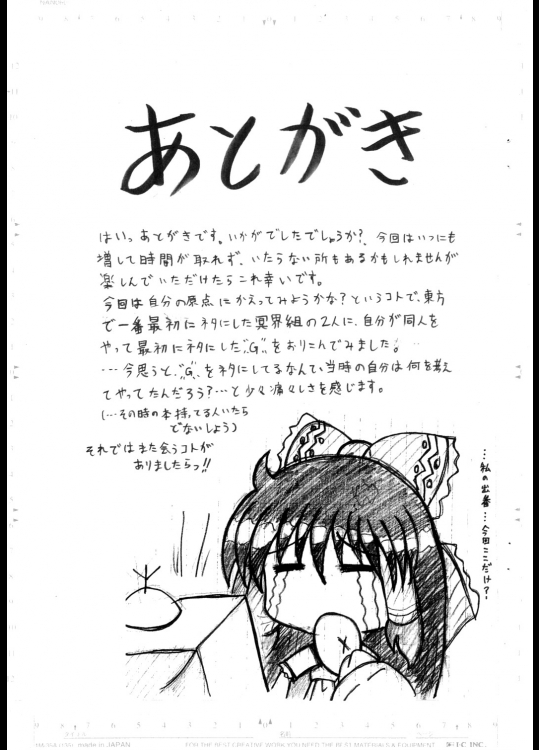 あとがき
はいっ あとがきです。いかがでしたでしょうか?、今回はいつにも
増して時間が取れず、いたらない所もあるかもしれませんが
楽しんでいただけたらこれ幸いです。
今回は自分の原点にかえってみようかな?というコトで、東方
で一番最初にネタにした冥界組の2人に、自分が同人を
やって最初にネタにした"G"をおりこんでみました。
…今思うと、"G"をネタにしてるなんて、当時の自分は何を考え
てやってたんだろう?…と少々凄々しさを感じます。
(…その時の本持ってる人いたら
どないしよう)
それではまた会うコトが
ありましたらっ!!
…私の出番…今回ここだけ?
タイトル
名前
made in JAPAN
FOR THE BEST CREATIVE WORK, YOU NEED THE BEST MATERIALS & EQUIPMENT.
I-C INC.